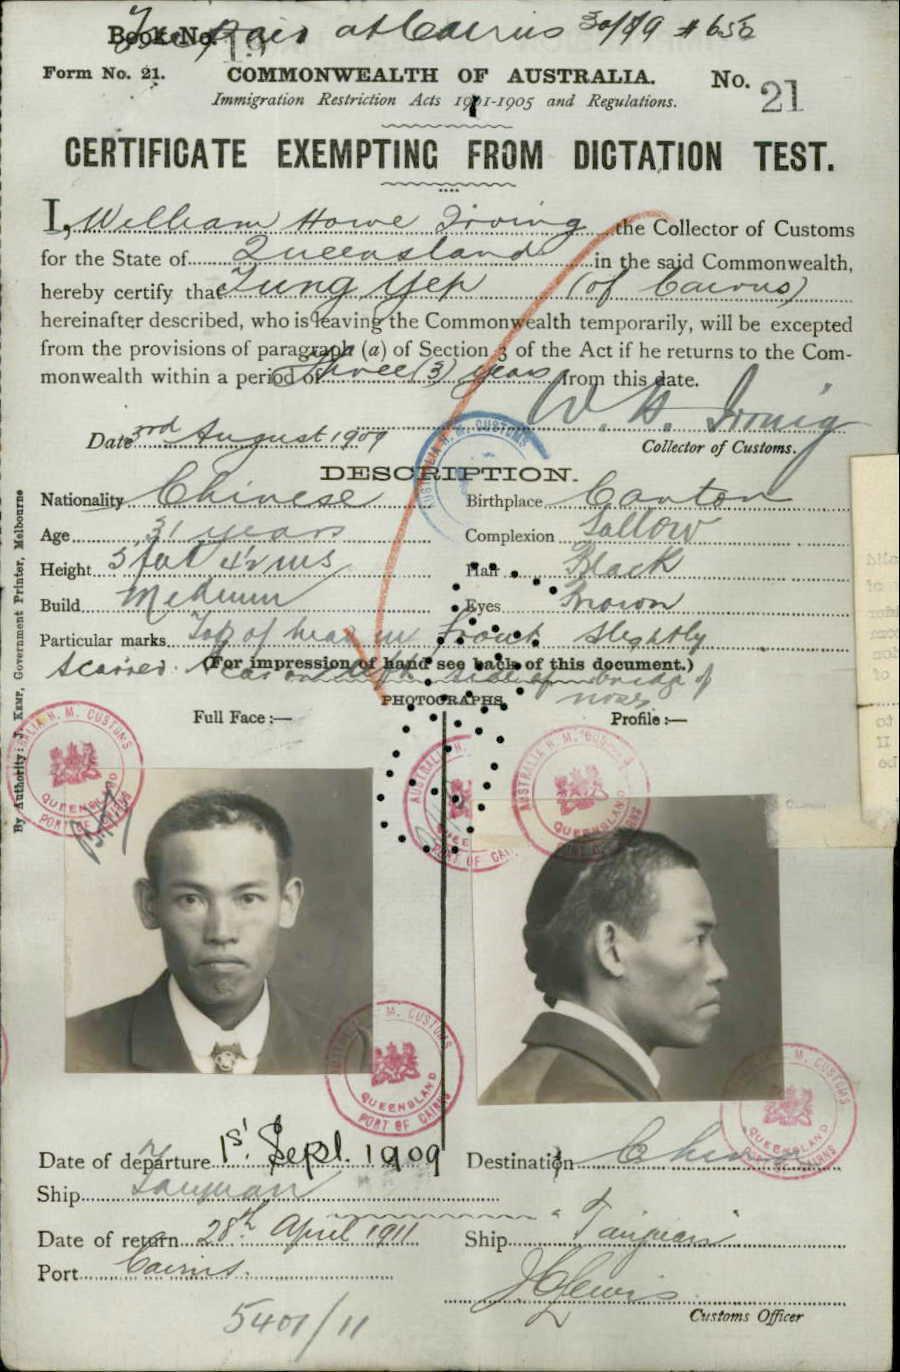 Book No. 19
Fee paid at Cairns 30/7/09 # 656
Form No. 21. COMMONWEALTH OF AUSTRALIA. No. 21
Immigration Restriction Acts 1901-1905 and Regulations.
CERTIFICATE EXEMPTING FROM DICTATION TEST.
I, William Howe Irving the Collector of Customs
for the State of Queensland in the said Commonwealth,
hereby certify that Tung Yep (of Cairns)
hereinafter described, who is leaving the Commonwealth temporarily, will be excepted
from the provisions of paragraph (a) of Section 3 of the Act if he returns to the Com-
monwealth within a period of Three (3) years from this date.
W. H. Irving
Date 3rd August 1909 Collector of Customs.
DESCRIPTION.
Nationality Chinese Birthplace Canton
Age 31 years Complexion Sallow
Height 5 feet 4½ ins Hair Black
Build Medium Eyes Brown
Particular marks Top of head in front slightly
scarred. Scar on side of bridge of
nose
(For impression of hand see back of this document.)
PHOTOGRAPHS.
Full Face :— Profile :—
By Authority: J. KEMP, Government Printer, Melbourne
AUSTRALIA H. M. CUSTOMS
QUEENSLAND
PORT OF CAIRNS
AUSTRALIA H. M. CUSTOMS
QUEENSLAND
PORT OF CAIRNS
AUSTRALIA H. M. CUSTOMS
QUEENSLAND
PORT OF CAIRNS
Date of departure 1st Sept. 1909 Destination China
Ship Taiyuan
Date of return 28th April 1911 Ship "Taiyuan"
Port Cairns.
Customs Officer
5401/11